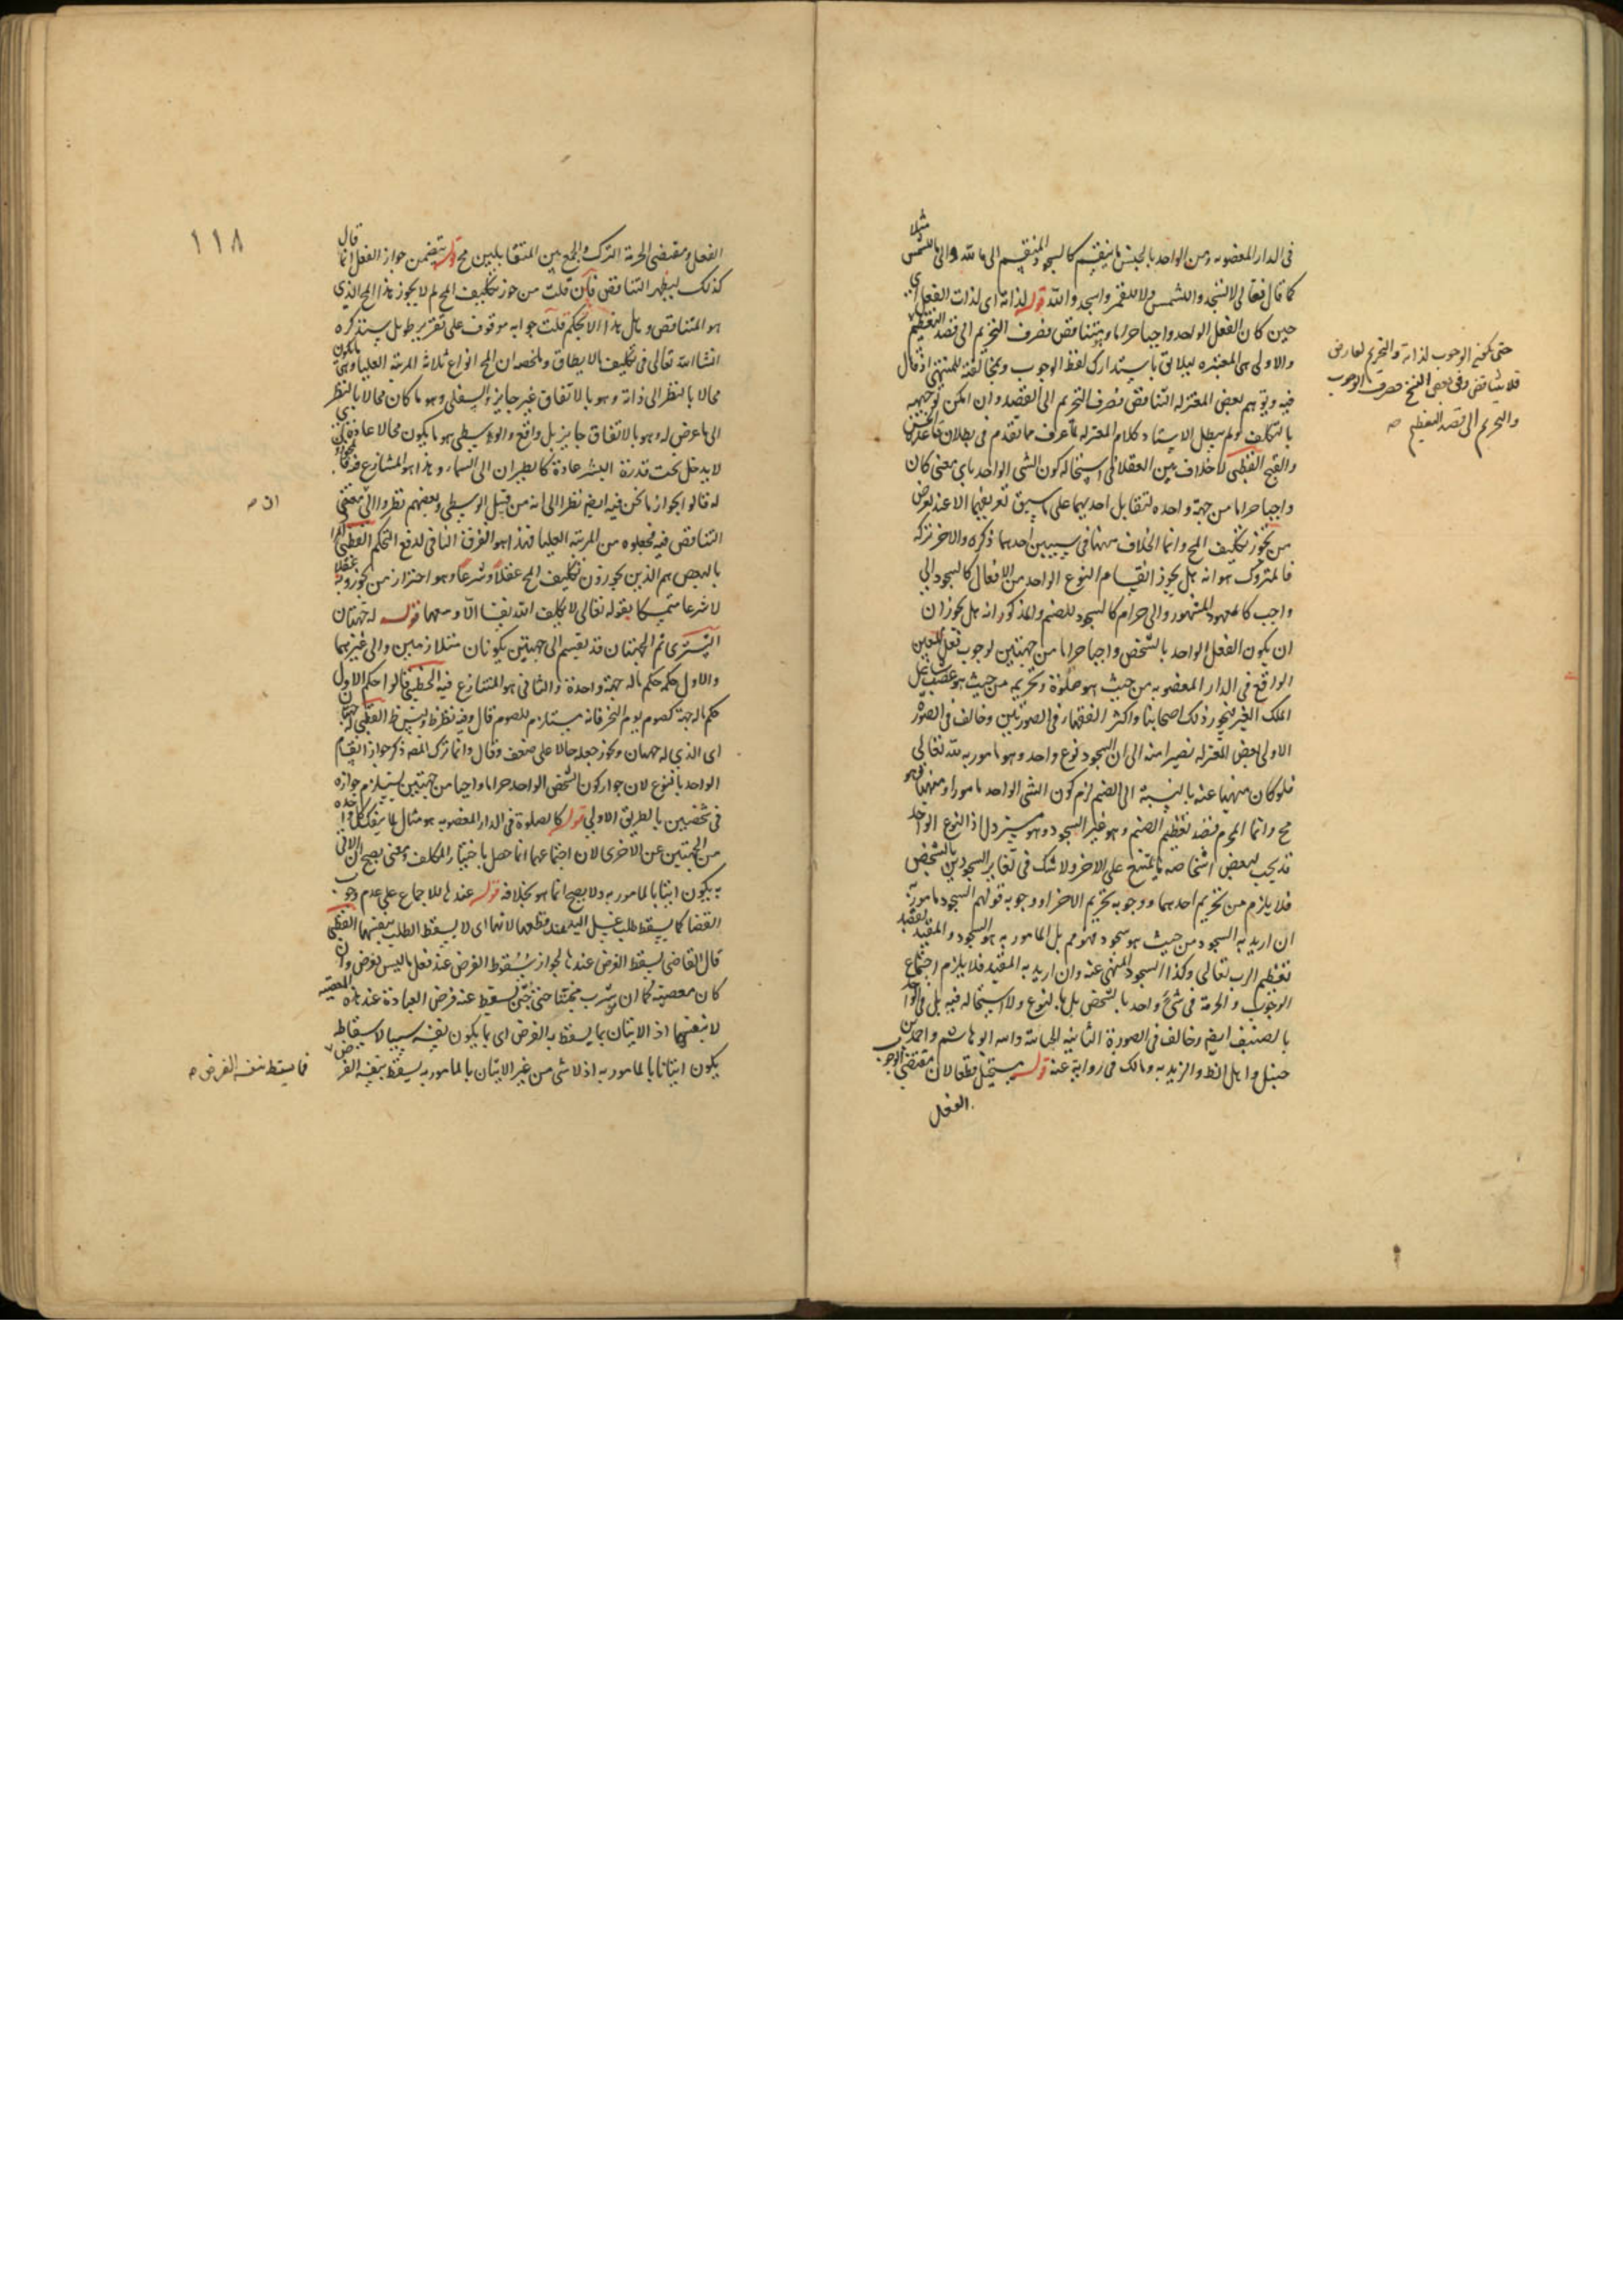 في الدار المغصوبه ومن الواحد بالجنس ما ينقسم كالسجود المنقسم الى ما لله والى ما للشمس مثلا
كما قال تعالى لا تسجدوا للشمس ولا للقمر واسجدوا لله قوله لذاته اى لذات الفعل
حين كان الفعل الواحد واجبا حراما ويتناقض فصرف التحريم الى قصد التعظيم
والاولى هى المعتبره باستدراك لفظ الوجوب ومخالفته للمنتهى اذ قال
فيه وتوهم بعض المعتزله التناقض فصرف التحريم الى القصد وان امكن توجيهه
بالتكلف ولم يبطل الاستاد كلام المعتزله لما عرف مما تقدم في بطلان قاعدة التحسين
والقبح القطبى لا خلاف بين العقلا في استحاله كون الشى الواحد باى معنى كان
واجبا حراما من جهة واحده لتقابل احديهما على ما سبق تعريفهما الا عند بعض
من يجوز تكليف المح وانما الخلاف ههنا في سببين احدهما ذكره والاخر تركه
فالمتروك هو انه هل يجوز انقسام النوع الواحد من الافعال كالسجود الى
واجب كالمعهود المشهور والى حرام كالسجود للصنم والمذكور انه هل يجوز ان
ان يكون الفعل الواحد بالشخص واجبا حراما من جهتين لوجوب الفعل المعين
الواقع في الدار المغصوبه من حيث هو صلوة وتحريمه من حيث هو غصب شاغل
الملك الغير فيجوز ذلك اصحابنا واكثر الفقهاء في الصورتين وخالف في الصورة
الاولى بعض المعتزله مصيرا منه الى ان السجود نوع واحد وهو مامور به لله تعالى
فلو كان منهيا عنه بالنسبة الى الصنم لزم كون الشى الواحد مامورا ومنهيا وهو
مح وانما المحرم قصد تعظيم الصنم وهو غير السجود وهو مستردل اذ النوع الواحد
قد يجب لبعض اشخاصه ما يمتنع على الاخر ولا شك في تغاير السجودين بالشخص
فلا يلزم من تحريم احدهما ووجوبه تحريم الاخر او وجوبه قولهم السجود مامور به
ان اريد به السجود من حيث هو سجود فهو مم بل المامور به هو السجود والمقيد بقصد
تعظيم الرب تعالى وكذا السجود المنهى عنه وان اريد به المقيد فلا يلزم اجتماع
الوجوب والحرمة في شئ واحد بالشخص بل بالنوع ولا استحاله فيه بل في الواحد
بالصنف ايضا وخالف في الصورة الثانيه الجبائى وابنه ابو هاشم واحمد بن
حنبل واهل الظ والزيديه ومالك في رواية عنه قوله يستحيل قطعا لان مقتضى الوجوب
الفعل
حتى تكون الوجوب لذاته والتحريم لعارض
فلا يتناقض وفى بعض النسخ صرف الوجوب
والتحريم الى قصد التعظيم صه
١١٨
الفعل ومقتضى الحرمة الترك والجمع بين المتقابلين مح قوله يتضمن جواز الفعل انما قال
كذلك ليظهر التناقض فان قلت من جوز تكليف المح لم لا يجوز هذا المح الذي
هو المتناقض وهل هذا الا تحكم قلت جوابه موقوف على تقرير طويل سنذكره
انشا الله تعالى في تكليف ما لا يطاق وملخصه ان المح انواع ثلاثة المرتبة العليا وهى ما يكون
محالا بالنظر الى ذاته وهو بالاتفاق غير جايز والسفلى وهو ما كان محالا بالنظر
الى ما عرض له وهو بالاتفاق جايز بل واقع والوسطى هو ما يكون محالا عادة اى
لا يدخل تحت قدرة البشر عادة كالطيران الى السماء وهذا هو المتنازع فيه
له قالوا بجواز ما نحن فيه ايضا نظرا الى انه من قبيل الوسطى وبعضهم نظروا الى مقتضى
التناقض فيه فجعلوه من المرتبة العليا فهذا هو الفرق النافى لدفع التحكم القطبى المراد
بالبعض هم الذين يجوزون تكليف المح عقلا وشرعا وهو احتراز من يجوزونه عقلا
لا شرعا متمسكا بقوله تعالى لا يكلف الله نفسا الا وسعها قوله له جهتان
التسترى ثم الجهتان قد تقسم الى جهتين يكونان متلازمين والى غيرهما
والاول حكمه حكم ما له جهة واحدة والثانى هو المتنازع فيه الخطبى قالوا حكم الاول
حكم ما له جهة كصوم يوم النحر فانه يستلزم للصوم قال وفيه نظر القطبى له جهتان
اى الذي له جهتان ويجوز جعله حالا على ضعف وقال وانما ترك المصـ ذكر جواز انقسام
الواحد بالنوع لان جواز كون الشخص الواحد حراما واجبا من جهتين يستلزم جوازه
في شخصين بالطريق الاولى قوله كالصلوة في الدار المغصوبه هو مثال لما ينفك كل واحدة
من الجهتين عن الاخرى لان اجتماعهما انما حصل باختيار المكلف ومعنى يصح ان الاتى
به يكون اتيا بالمامور به ولا يصح انما هو بخلافه قوله عندها للاجماع على عدم وجوب
القضا كما يسقط طلب غسل اليد عند قطعها لا بها اى لا يسقط الطلب بنفسها القطبى
قال القاضى يسقط الفرض عندها لجواز سقوط الفرض عند فعل ما ليس بفرض وان
كان معصية كما ان شرب مجننا حتى جن يسقط عنه فرض العبادة عند هذه المعصية
لا بنفسها اذ الاتيان بما يسقط به الفرض اى بما يكون نفسه سببا لاسقاطه
يكون اتيانا بالمامور به اذ لا شى من غير الاتيان بالمامور به يسقط بنفسه الفرض
فما يسقط بنفسه الفرض صه